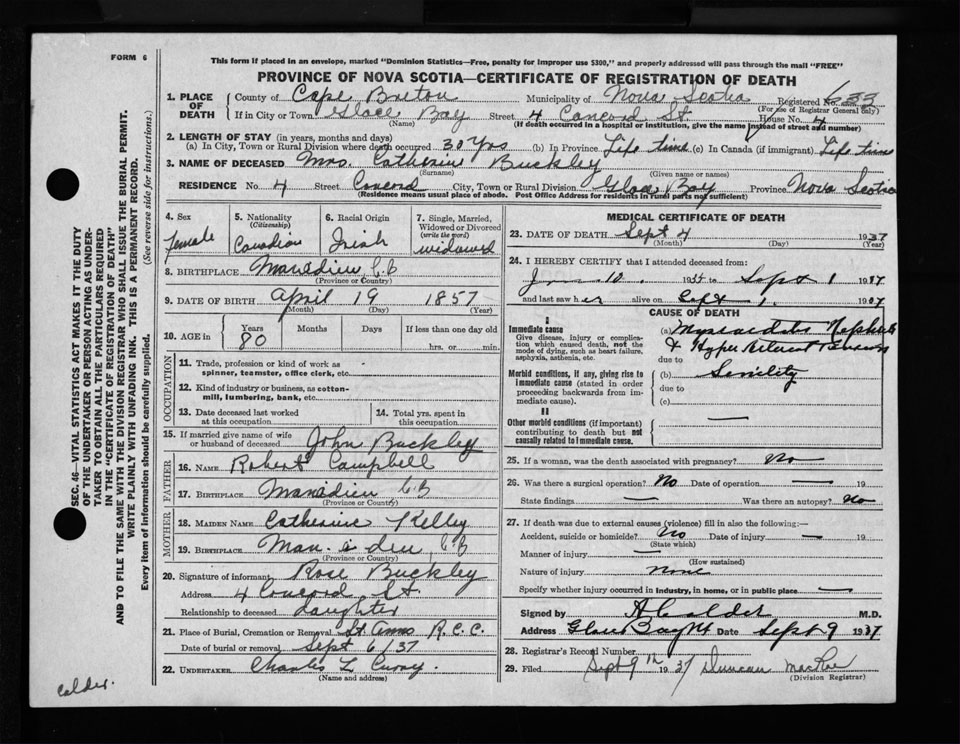 FORM 6
This form if placed in an envelope, marked "Dominion Statistics—Free, penalty for improper use $300," and properly addressed will pass through the mail "FREE"
PROVINCE OF NOVA SCOTIA—CERTIFICATE OF REGISTRATION OF DEATH
SEC. 46—VITAL STATISTICS ACT MAKES IT THE DUTY
OF THE UNDERTAKER OR PERSON ACTING AS UNDER-
TAKER TO OBTAIN ALL THE PARTICULARS REQUIRED
IN THE "CERTIFICATE OF REGISTRATION OF DEATH"
AND TO FILE THE SAME WITH THE DIVISION REGISTRAR WHO SHALL ISSUE THE BURIAL PERMIT.
WRITE PLAINLY WITH UNFADING INK. THIS IS A PERMANENT RECORD.
Every item of information should be carefully supplied. (See reverse side for instructions.)
1. PLACE OF DEATH County of Cape Breton Municipality of Nova Scotia Registered No. 633
(For use of Registrar General only)
If in City or Town Glace Bay Street 4 Concord St. House No. 4
(Name) (If death occurred in a hospital or institution, give the name instead of street and number)
2. LENGTH OF STAY (in years, months and days)
(a) In City, Town or Rural Division where death occurred 30 Yrs (b) In Province Life time (c) In Canada (if immigrant) Life time
3. NAME OF DECEASED Mrs. Catherine Buckley
(Surname) (Given name or names)
RESIDENCE No. 4 Street Concord City, Town or Rural Division Glace Bay Province Nova Scotia
(Residence means usual place of abode. Post Office Address for residents in rural parts not sufficient)
4. Sex Female
5. Nationality (Citizenship) Canadian
6. Racial Origin Irish
7. Single, Married, Widowed or Divorced (write the word) widowed
8. BIRTHPLACE Manadieu C.B
(Province or Country)
9. DATE OF BIRTH April 19 1857
(Month) (Day) (Year)
10. AGE in Years 80 Months Days If less than one day old hrs. or min.
OCCUPATION
11. Trade, profession or kind of work as spinner, teamster, office clerk, etc.
12. Kind of industry or business, as cotton-mill, lumbering, bank, etc.
13. Date deceased last worked at this occupation
14. Total yrs. spent in this occupation
15. If married give name of wife or husband of deceased John Buckley
FATHER
16. NAME Robert Campbell
17. BIRTHPLACE Manadieu C.B
(Province or Country)
MOTHER
18. MAIDEN NAME Catherine Kelley
19. BIRTHPLACE Man. a dieu, C.B
(Province or Country)
20. Signature of informant Rose Buckley
Address 4 Concord St.
Relationship to deceased daughter
21. Place of Burial, Cremation or Removal St. Anns R.C.C.
Date of burial or removal Sept 6/37
22. UNDERTAKER Charles L Curry.
(Name and address)
MEDICAL CERTIFICATE OF DEATH
23. DATE OF DEATH Sept 4 1937
(Month) (Day) (Year)
24. I HEREBY CERTIFY that I attended deceased from:
10. 19 to Sept 1 1937
and last saw her alive on Sept 1. 1937
CAUSE OF DEATH
I
Immediate cause
Give disease, injury or complica-
tion which caused death, not the
mode of dying, such as heart failure,
asphyxia, asthenia, etc.
(a) Myocarditis Nephritis
&
due to
Morbid conditions, if any, giving rise to
immediate cause (stated in order
proceeding backwards from im-
mediate cause).
(b) Senility
due to
(c)
II
Other morbid conditions (if important)
contributing to death but not
causally related to immediate cause. —
25. If a woman, was the death associated with pregnancy? No
26. Was there a surgical operation? No Date of operation — 19
State findings — Was there an autopsy? No
27. If death was due to external causes (violence) fill in also the following:—
Accident, suicide or homicide? No Date of injury — 19
(State which)
Manner of injury —
(How sustained)
Nature of injury none
Specify whether injury occurred in industry, in home, or in public place —
Signed by A Calder M.D.
Address Glace Bay NS Date Sept 9 1937
28. Registrar's Record Number
29. Filed Sept 9th 1937 Duncan MacRae
(Division Registrar)
Calder.